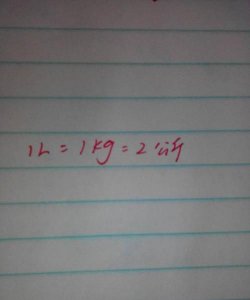 1L = 1kg = 2公斤